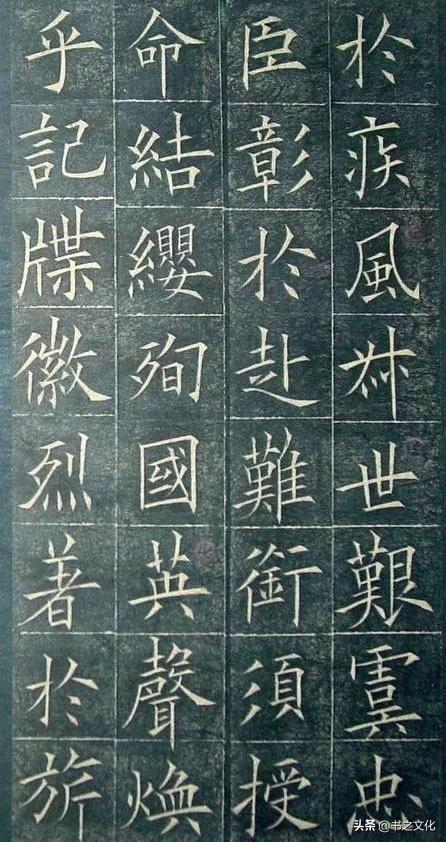 於疾風叔世艱虞忠
臣彰於赴難銜須授
命結纓殉國英聲煥
乎記牒徽烈著於旂
头条 @书之文化